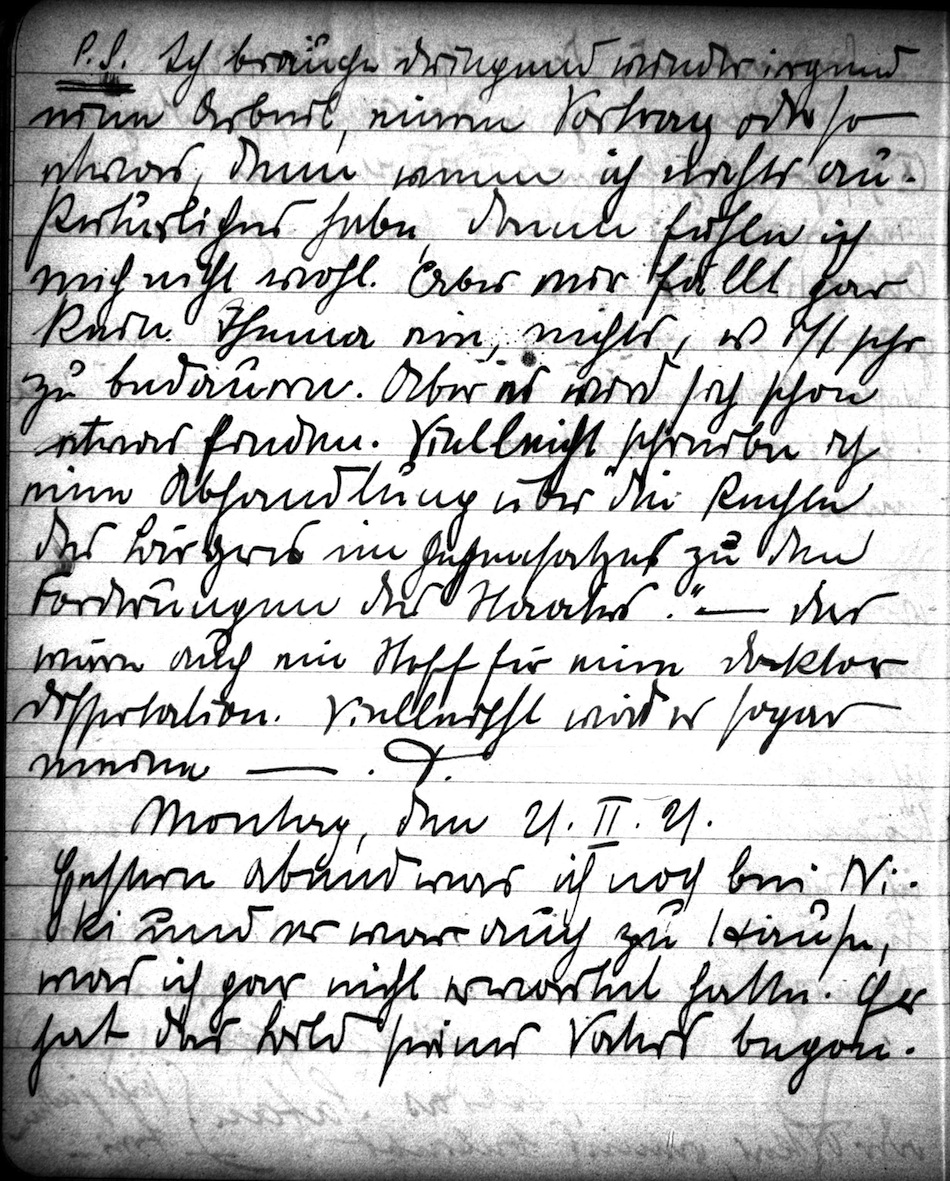 P.S. Ich brauche dringend wieder irgend
eine Arbeit, einen Vortrag oder so
etwas, denn wenn ich nichts au-
ßertürliches habe, dann fühle ich
mich nicht wohl. Aber mir fällt gar
kein Thema ein, nichts, es ist sehr
zu bedauern. Aber es wird sich schon
etwas finden. Vielleicht schreibe ich
eine Abhandlung über "die Rechte
des Bürgers im Gegensatzes zu den
Forderungen des Staates." — das
wäre auch ein Stoff für eine Doktor
dissertation. Vielleicht wird es sogar
meine — .
Montag, den 21. II. 21.
Gestern Abend war ich noch bei Ni-
ki und er war auch zu Hause,
was ich gar nicht erwartet hatte. Er
hat das Bild seines Vaters begon-